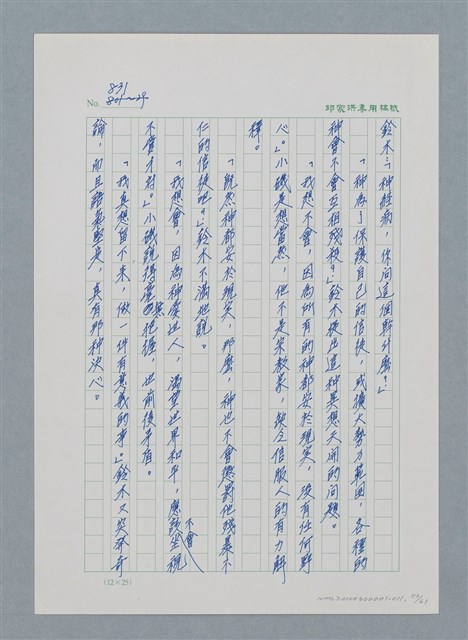 831
801～25
No.
邱家洪專用稿紙
鈴木:「神經病，你問這個幹什麼？」
「神為了保護自己的信徒，或擴大勢力範圍，各種的
神會不會互相殘殺？」鈴木提出這種異想天開的問題。
「我想不會，因為所有的神都安於現實，沒有任何野
心。」小磯是想當然，但不是宗教家，缺乏信服人的有力解
釋。
「既然神都安於現實，那麼，神也不會懲罰他殘暴不
仁的信徒吧？」鈴木不滿地說。
「我想會，因為神愛世人，渴望世界和平，應該不會坐視
不管才對。」小磯說得毫無把握，也前後矛盾。
「我真想留下來，做一件有意義的事。」鈴木又突發奇
論，而且語氣堅決，真有那种決心。
(12×25)